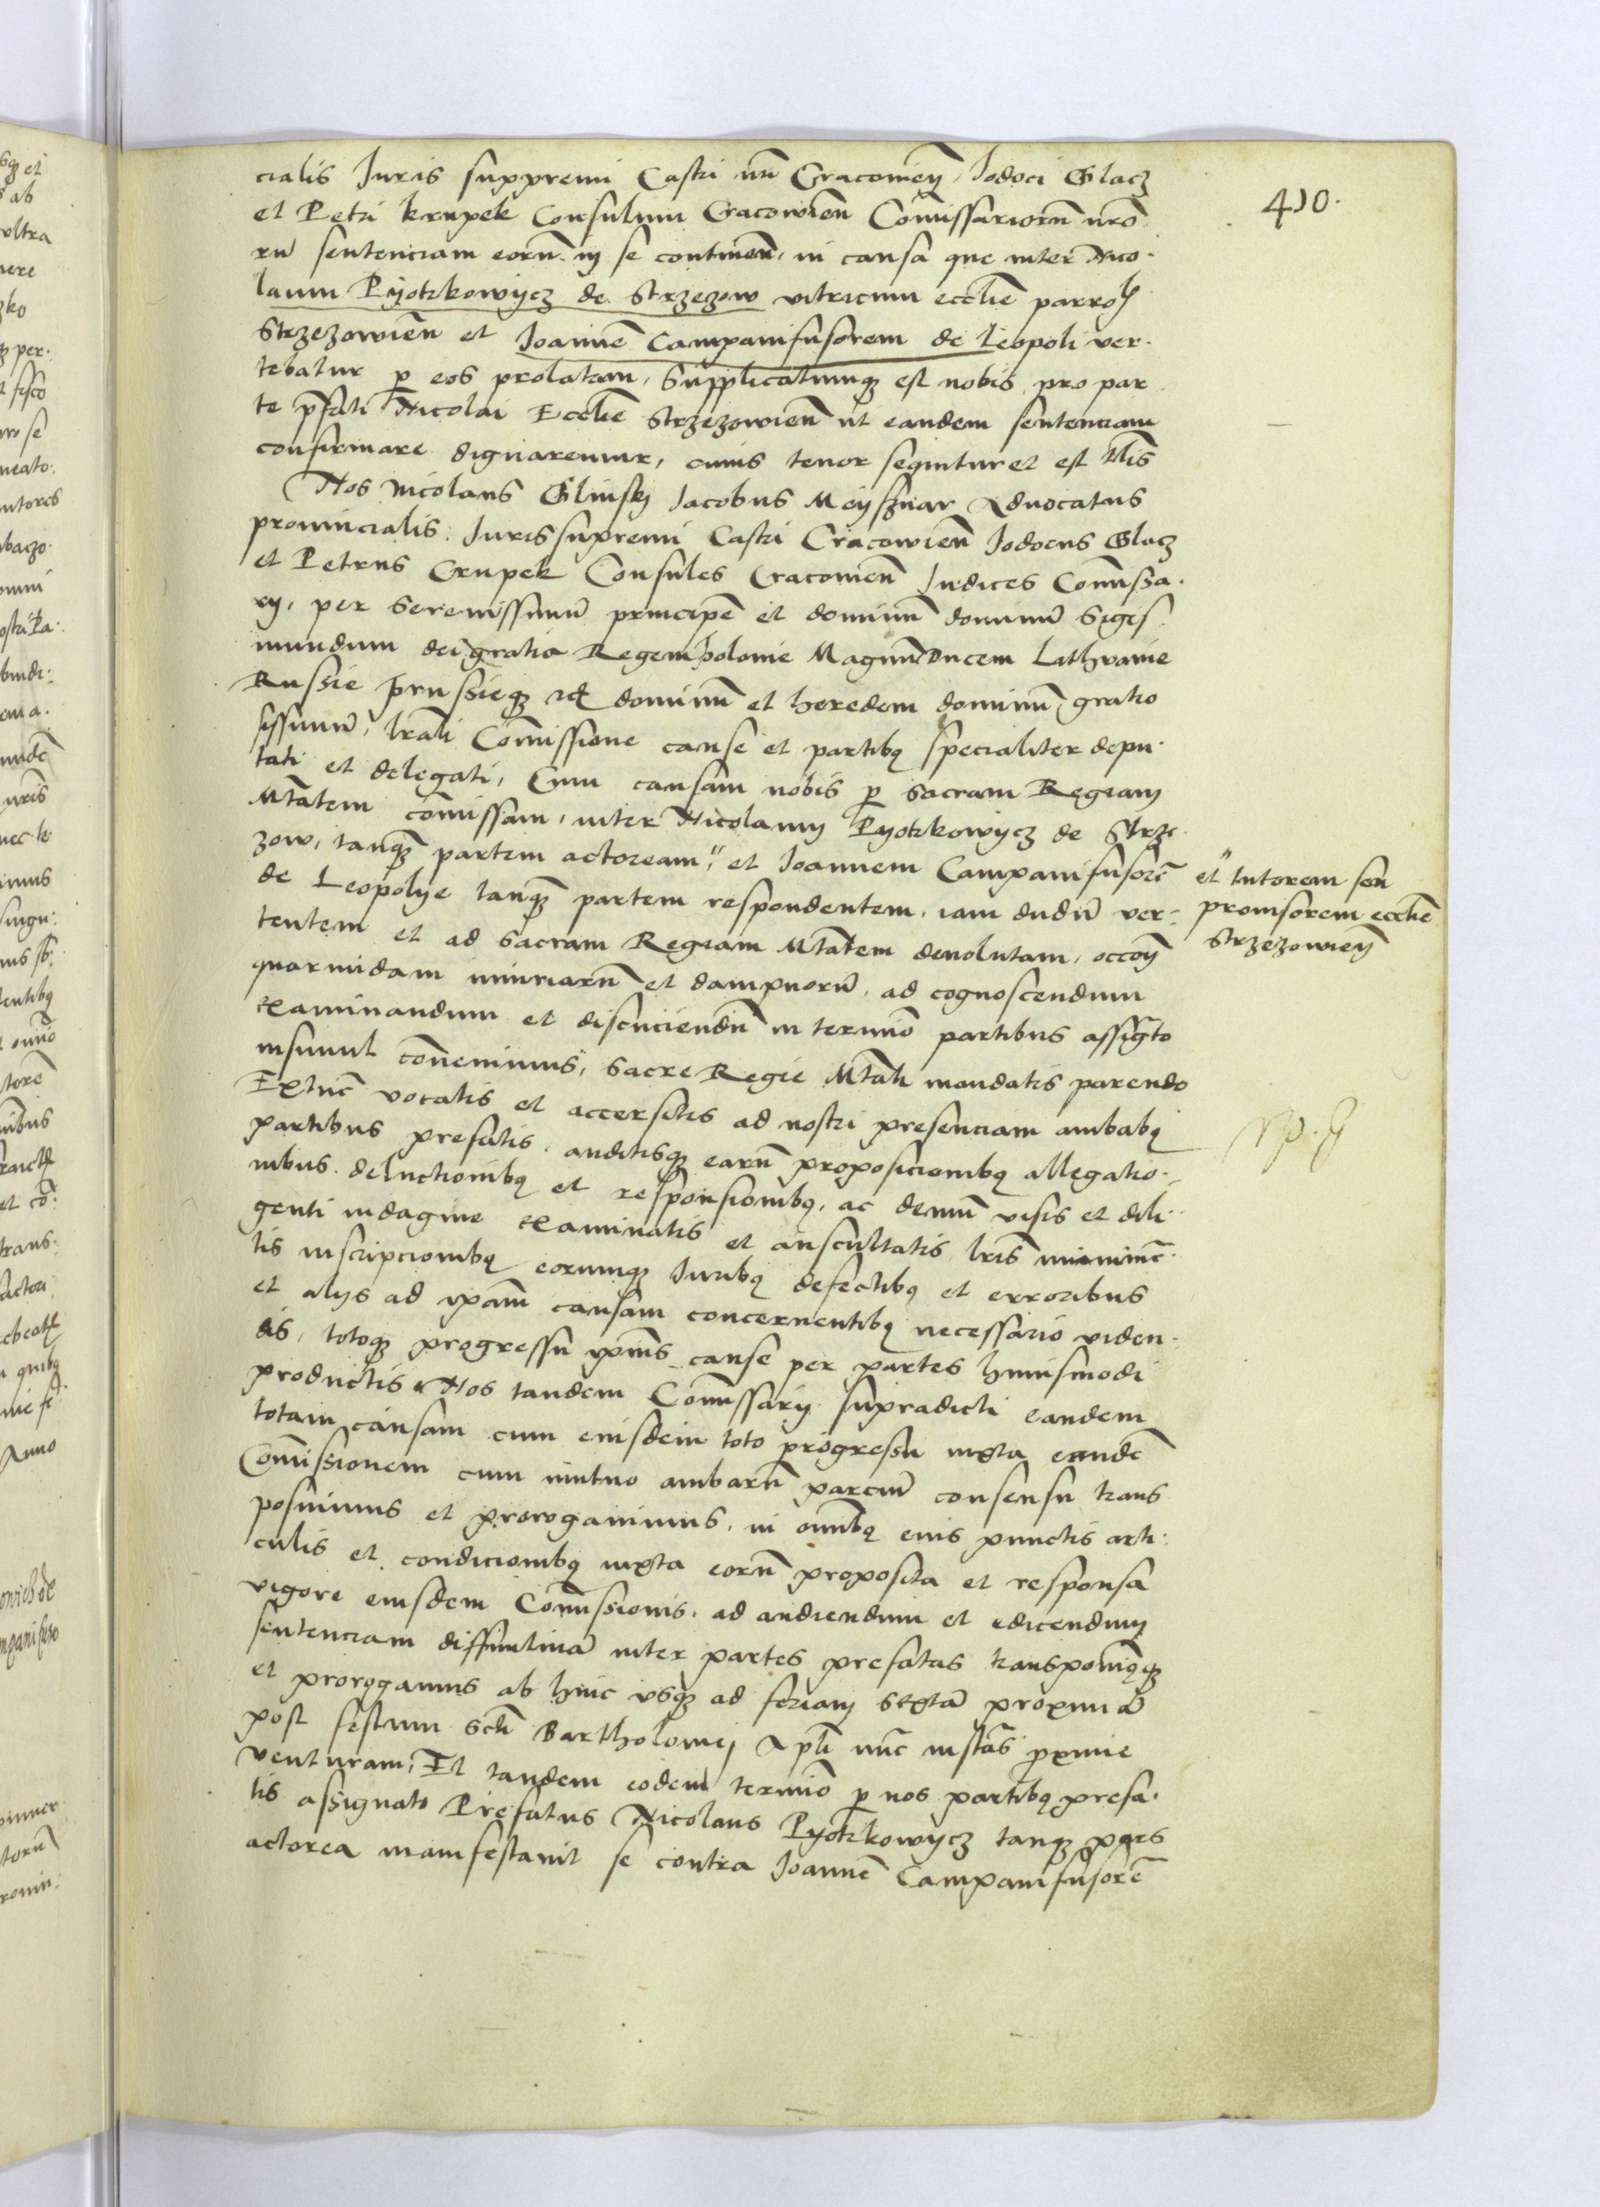 410.
cialis Juris suppremi Castri nri Cracovieñ, Jodoci Glacz
et Petri Krupek Consulum Cracovień Comissariorū nr̃o
rū sentenciam eorū in se continen̄, in causa que inter Nico
laum Pyotrkowycz de Strzezow vitricum eccłie parroch
Strzezowień et Joannē Campanifusorem de Leopoli ver
tebatur p eos prolatam, Supplicatumqȝ est nobis pro par
te p̄fati Nicolai Eccłie Strzezowień ut eandem sentenciam
confirmare dignaremur, cuius tenor sequitur et est tlis
Nos Nicolaus Glinsky Jacobus Meysznar Advocatus
provincialis Juris supremi Castri Cracowień Jodocus Glacz
et Petrus Crupek Consules Cracovień Judices Comissa
rij, per Serenissimū principē et dominū dominū Sigis
mundum dei gratia Regem polonie Magnū Ducem Lithvanie
Russie prussieqȝ etc dominū et heredem dominū gratio
sissimū, lrali Comissione cause et partibȝ specialiter depu
tati et delegati, Cum causam nobis p Sacram Regiam
Mtatem comissam, inter Nicolaum Pyotrkowycz de Strze
zow, tanqȝ partem actoream," et Joannem Campanifusorē
et" tutorem seu
provisorem eccłie
Strzezowień
de Leopolye tanqȝ partem respondentem, iam dudū ver
tentem et ad Sacram Regiam Mtatem devolutam, occoñ
quarundam iniuriarū et dampnorū, ad cognoscendum
examinandum et discuciendū in termino partibus assigto
insimul convenimus, Sacre Regie Mtati mandatis parendo
Extūc vocatis et accersitis ad nostri presenciam ambabȝ
partibus prefatis, auditisqȝ earū proposicionibȝ allegatio
nibus, deluctionibȝ et responsionibȝ, ac demū visis et dili
genti indagine examinatis et auscultatis lris munimē
tis inscripcionibȝ eorumqȝ Juribȝ defectibȝ et erroribus
et alijs ad ipam causam concernentibȝ necessario viden
dis, totoqȝ progressu ipius cause per partes huiusmodi
productis, Nos tandem Comissarij supradicti eandem
totam causam cum eiusdem toto progressu iuxta eandē
Comissionem cum mutuo ambarū parciū consensu trans
posuimus et prorogavimus, in omibȝ eius punctis arti
culis et condicionibȝ iuxta eorū proposita et responsa
vigore eiusdem Comissionis, ad audiendum et edicendum
sentenciam diffinitivā inter partes prefatas transponimȝqȝ
et prorogamus ab hinc usqȝ ad feriam sextā proximā
post festum Scti Bartholomej Apli nūc instās proxime
venturam, Et tandem eodem termino p nos partibȝ prefa
tis assignato Prefatus Nicolaus Pyotrkowycz tanqȝ pars
actorea manifestavit se contra Joannē Campanifusorē